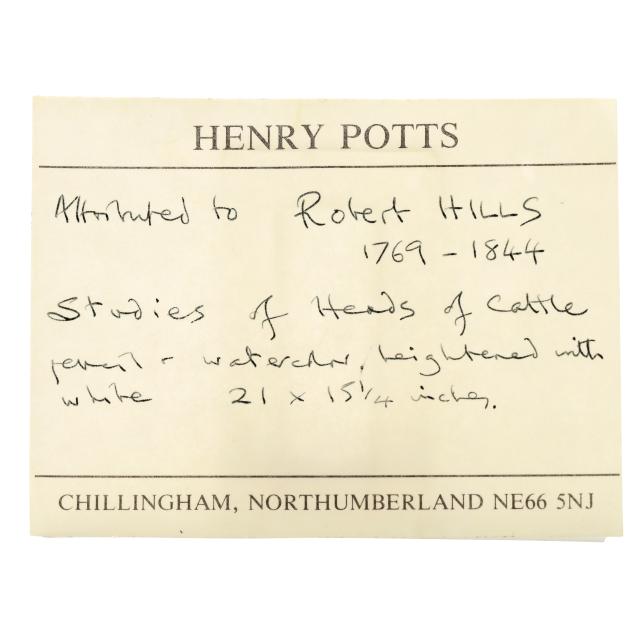 HENRY POTTS
Attributed to Robert HILLS
1769 - 1844
Studies of Heads of Cattle
pencil + watercolour, heightened with
white 21 x 15 1/4 inches.
CHILLINGHAM, NORTHUMBERLAND NE66 5NJ